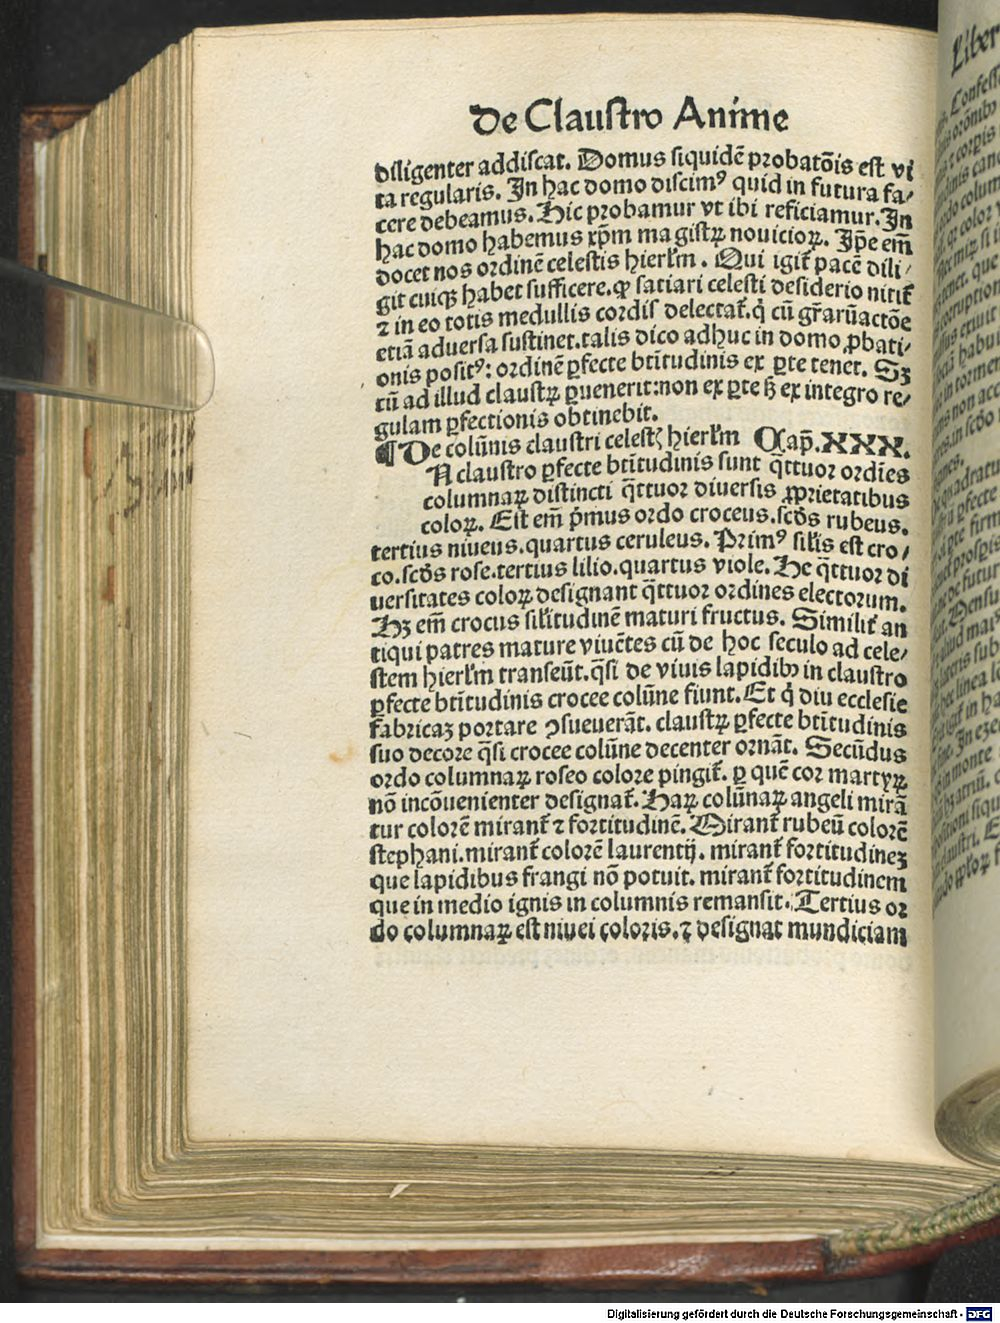 De Clauſtro Anime
diligenter addiſcat. Domus ſiquidē probatōis eſt vi
ta regularis. In hac domo diſcimꝰ quid in futura fa⸗
cere debeamus. Hic probamur vt ibi reficiamur. In
hac domo habemus xp̄m magiſtꝝ nouicioꝝ. Ip̄e em̄
docet nos ordinē celeſtis hierl̄m. Qui igit̄ pacē dili⸗
git cuiqꝫ habet ſufficere. ꝙ ſatiari celeſti deſiderio nitit̄
⁊ in eo totis medullis cordis delectat̄. q̇ cū gr̄arūactōe
etiā aduerſa ſuſtinet. talis dico adhuc in domo ꝓbati⸗
onis poſitꝰ: ordinē ꝑfecte btītudinis ex ꝑte tenet. Sꝫ
cū ad illud clauſtꝝ ꝑuenerit: non ex ꝑte ſꝫ ex integro re⸗
gulam ꝑfectionis obtinebit.
¶ De colūnis clauſtri celeſtꝭ hierl̄m Cap̄. XXX.
N clauſtro ꝑfecte btītudinis ſunt q̄ttuor ordīes
columnaꝝ diſtincti q̄ttuor diuerſis ꝓprietatibus
coloꝝ. Eſt em̄ p̄mus ordo croceus. ſcd̄s rubeus.
tertius niueus. quartus ceruleus. Primꝰ ſil̄is eſt cro⸗
co. ſcd̄s roſe. tertius lilio. quartus viole. He q̄ttuor di
uerſitates coloꝝ deſignant q̄ttuor ordines electorum.
Hꝫ em̄ crocus ſil̄itudinē maturi fructus. Similit̄ an
tiqui patres mature viuētes cū de hoc ſeculo ad cele⸗
ſtem hierl̄m tranſeūt. q̄ſi de viuis lapidibꝰ in clauſtro
ꝑfecte btītudinis crocee colūne fiunt. Et q̇ diu eccleſie
fabricaꝫ portare ꝯſueuerāt. clauſtꝝ ꝑfecte btītudinis
ſuo decore q̄ſi crocee colūne decenter ornāt. Secūdus
ordo columnaꝝ roſeo colore pingit̄. ꝑ quē cor martyꝝ
nō incōuenienter deſignat̄. Haꝝ colūnaꝝ angeli mirā
tur colorē mirant̄ ⁊ fortitudinē. Mirant̄ rubeū colorē
ſtephani. mirant̄ colorē laurentij. mirant̄ fortitudineꝫ
que lapidibus frangi nō potuit. mirant̄ fortitudinem
que in medio ignis in columnis remanſit. Tertius or
do columnaꝝ eſt niuei coloris. ⁊ deſignat mundiciam
Liber
Digitalisierung gefördert durch die Deutsche Forschungsgemeinschaft - DFG